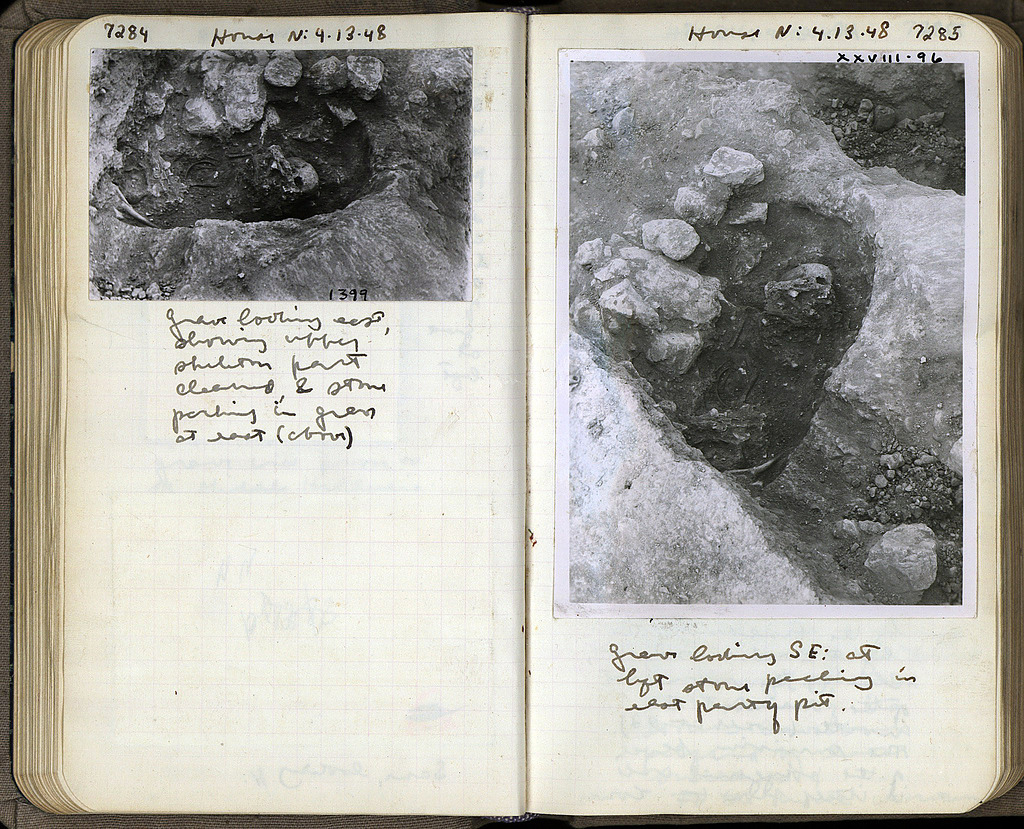 7284
House N: 4.13.48
1399
grave looking east,
showing upper
skeleton part
cleared, & stone
packing in grave
at east (above)
House N: 4.13.48 7285
XXVIII-96
grave looking SE: at
left stone packing in
east part of pit.